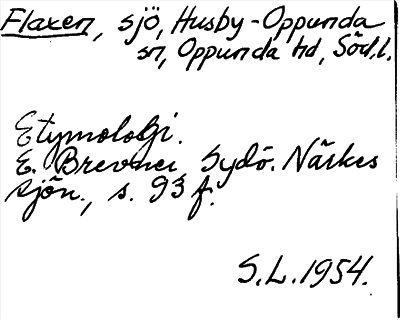 Flaxen, sjö, Husby-Oppunda
sn, Oppunda hd, Söd.l.
Etymologi.
E. Brevner Sydö. Närkes
sjön., s. 93 f.
S.L. 1954.